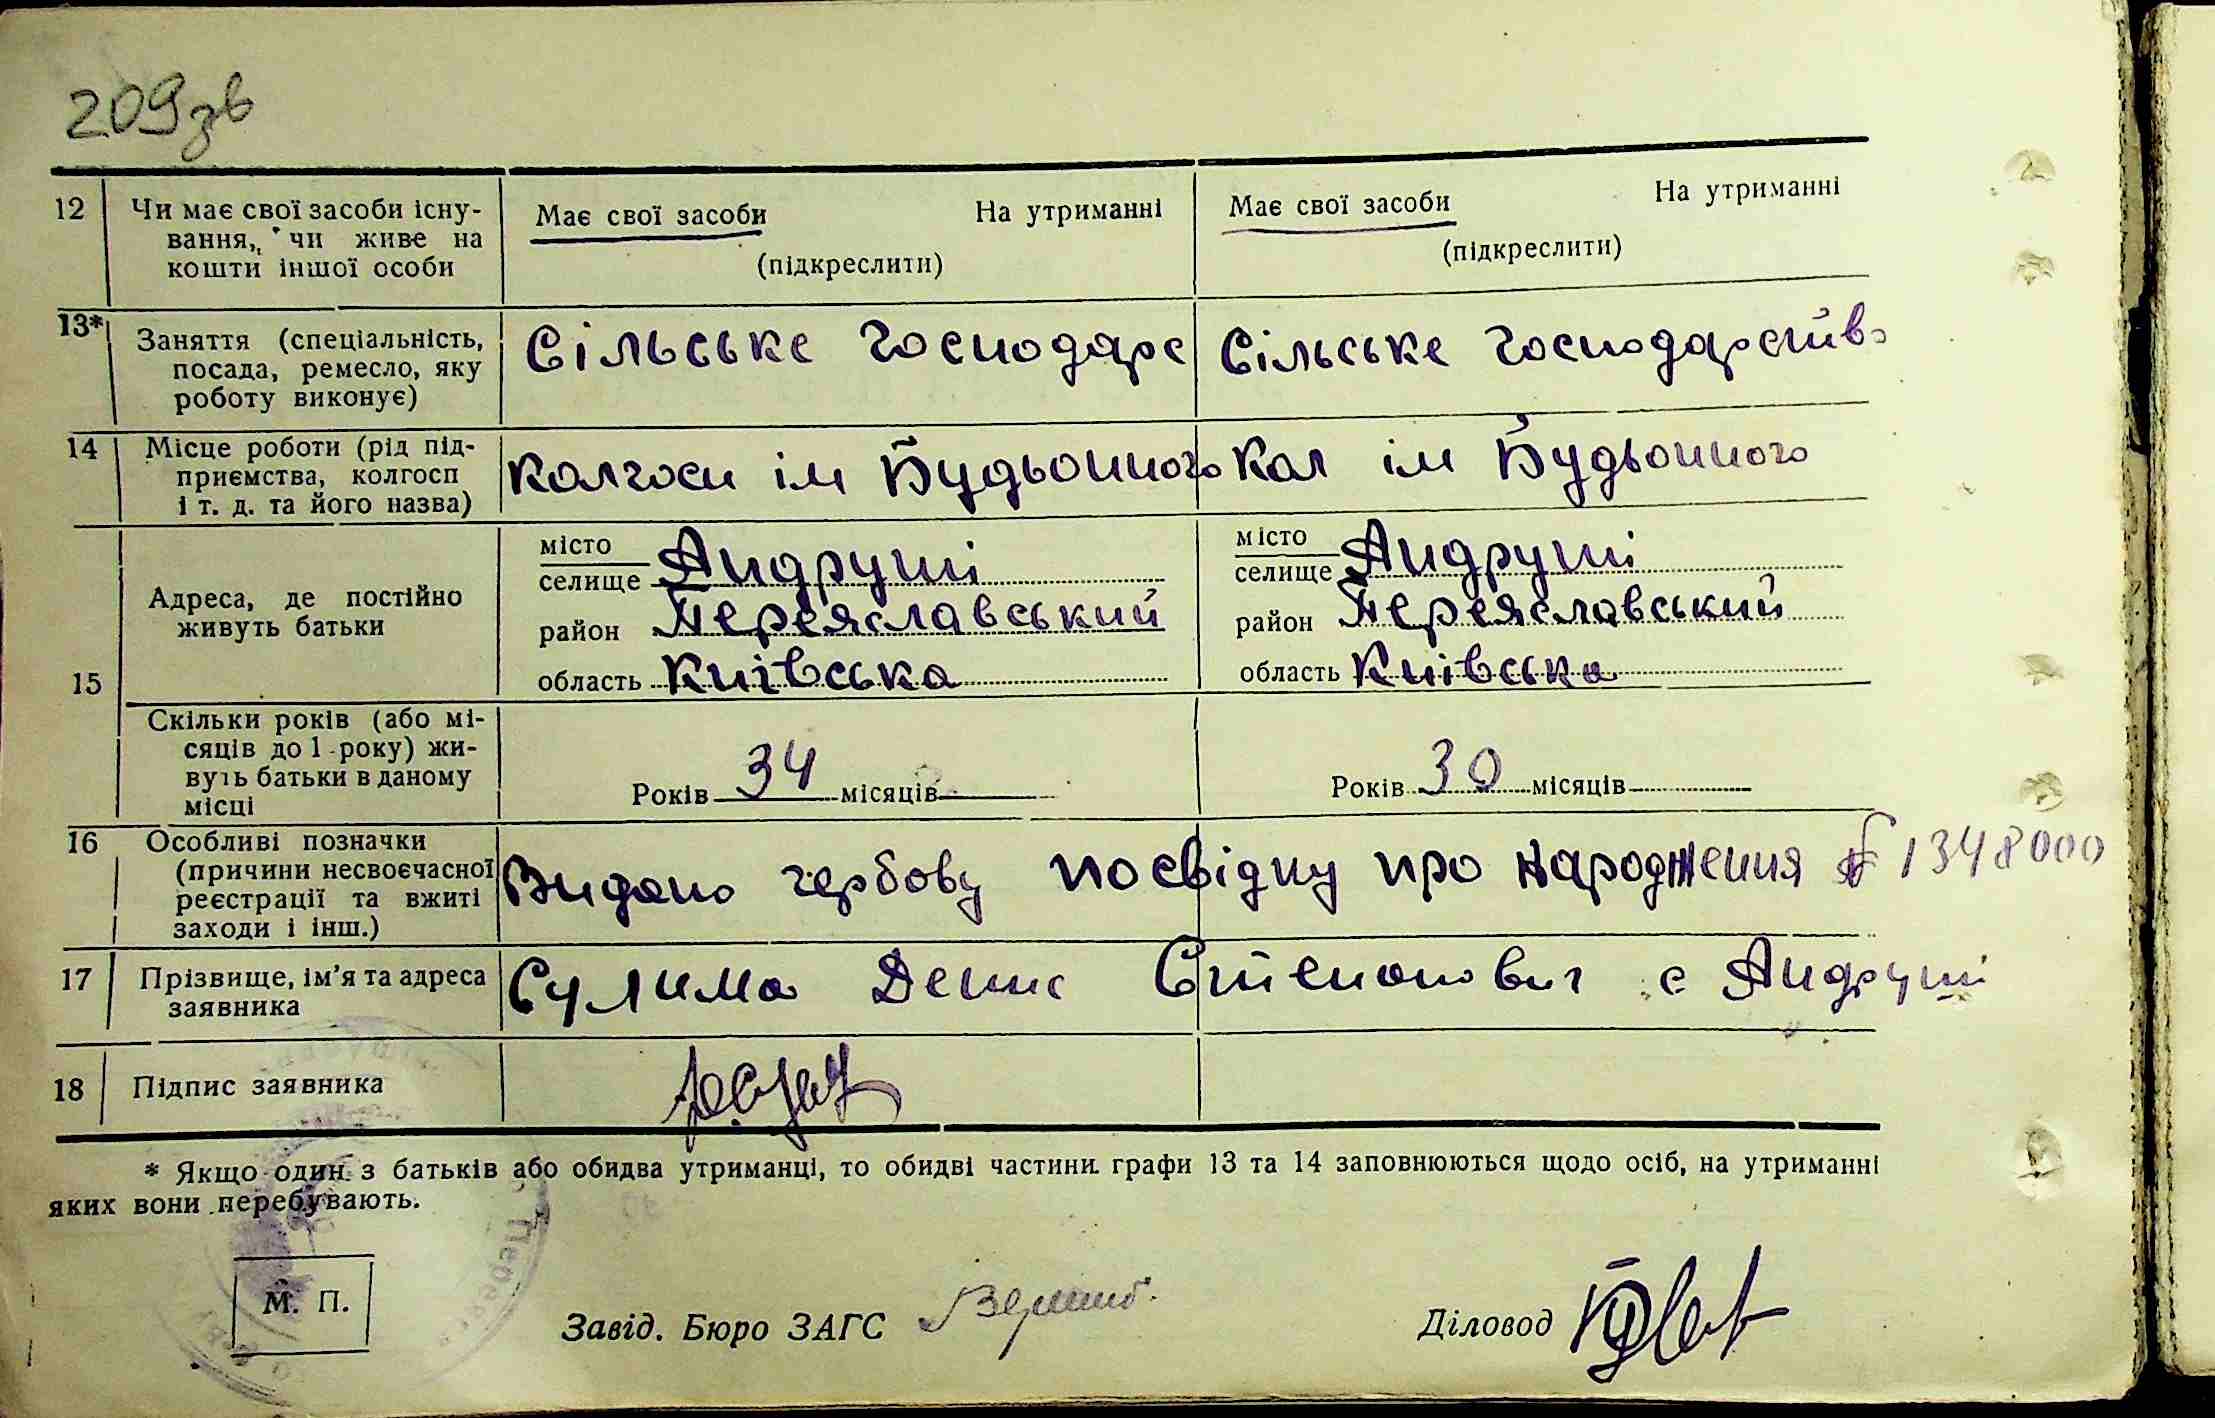 209зв
12 Чи має свої засоби існу-
вання, чи живе на
кошти іншої особи
Має свої засоби На утриманні
(підкреслити)
Має свої засоби На утриманні
(підкреслити)
13* Заняття (спеціальність,
посада, ремесло, яку
роботу виконує)
Сільське господарс
Сільське господарство
14 Місце роботи (рід під-
приємства, колгосп
і т. д. та його назва)
Колгосп ім Будьонного
Кол ім Будьонного
15
Адреса, де постійно
живуть батьки
місто
селище Андруші
район Переяславський
область Київська
місто
селище Андруші
район Переяславський
область Київська
Скільки років (або мі-
сяців до 1 року) жи-
вуть батьки в даному
місці
Років 34 місяців
Років 30 місяців
16 Особливі позначки
(причини несвоєчасної
реєстрації та вжиті
заходи і інш.)
Видано гербову посвідку про народження № 1348000
17 Прізвище, ім'я та адреса
заявника
Сулима Денис Степанович с Андруші
18 Підпис заявника
* Якщо один з батьків або обидва утриманці, то обидві частини графи 13 та 14 заповнюються щодо осіб, на утриманні
яких вони перебувають.
М. П.
Завід. Бюро ЗАГС
Діловод